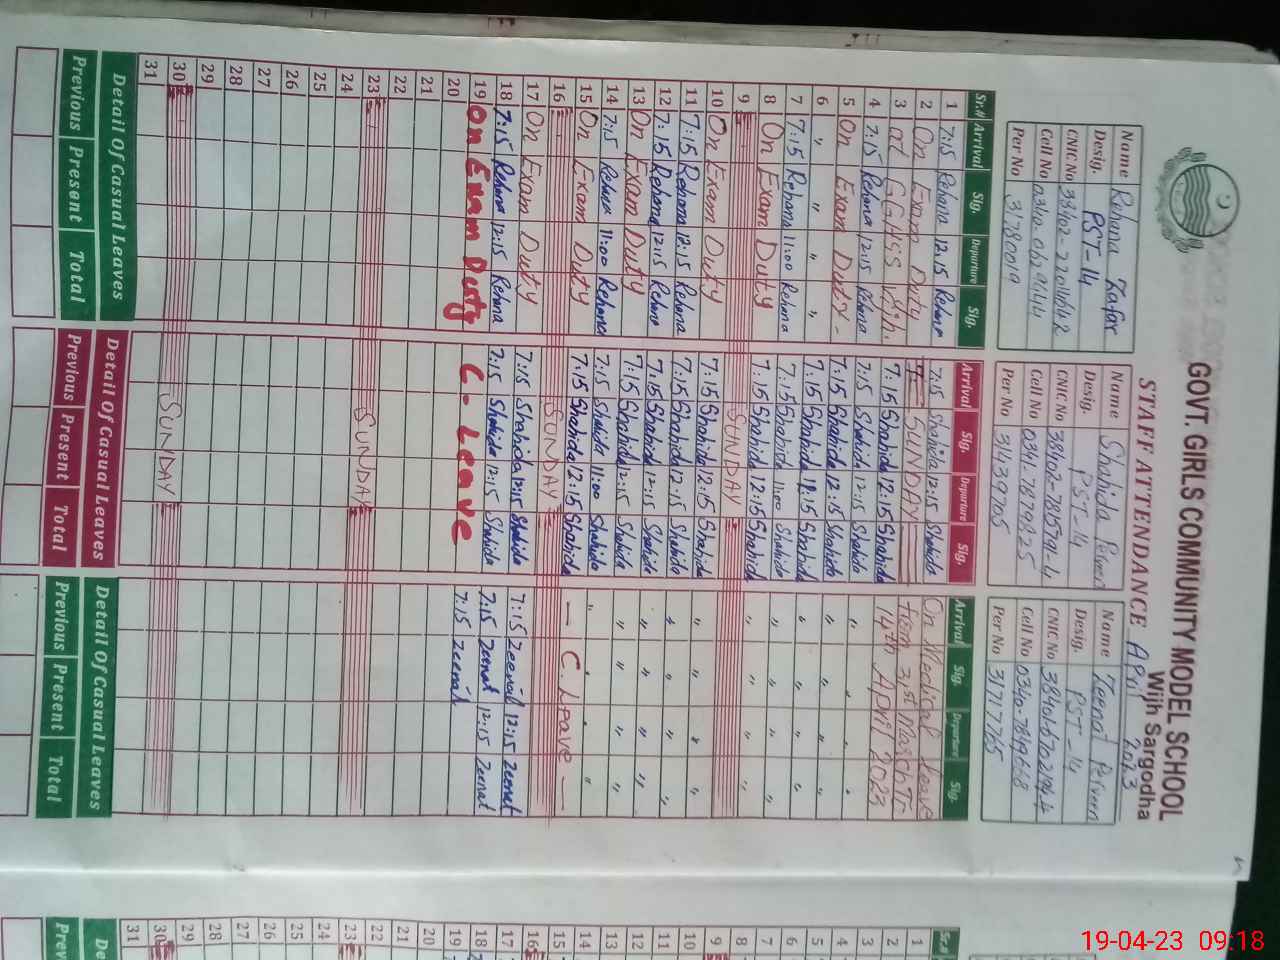 GOVT. GIRLS COMMUNITY MODEL SCHOOL
Wijh Sargodha
STAFF ATTENDANCE April 2023
Name Rehana Zafar
Desig. PST-14
CNIC.No
Cell No
Per No 31780019
Name Shahida Perveen
Desig. PST-14
CNIC No
Cell No 0341-7879825
Per No 31439705
Name Zeenat Perveen
Desig. PST-14
CNIC No
Cell No 0340-7819668
Per No 31717765
Sr.# Arrival Sig. Departure Sig. Arrival Sig. Departure Sig. Arrival Sig. Departure Sig.
1 7:15 Rehana 12:15 Rehana 7:15 Shahida 12:15 Shahida On Medical leave
2 On Exam Duty SUNDAY from 31st March To
3 at GGHSS Wijh. 7:15 Shahida 12:15 Shahida 14th April 2023
4 7:15 Rehana 12:15 Rehana 7:15 Shahida 12:15 Shahida
5 On Exam Duty - 7:15 Shahida 12:15 Shahida " " " "
6 " " " " 7:15 Shahida 12:15 Shahida " " " "
7 7:15 Rehana 11:00 Rehana 7:15 Shahida 11:00 Shahida " " " "
8 On Exam Duty 7:15 Shahida 12:15 Shahida " " " "
9 SUNDAY
10 On Exam Duty 7:15 Shahida 12:15 Shahida " " " "
11 7:15 Rehana 12:15 Rehana 7:15 Shahida 12:15 Shahida " " " "
12 7:15 Rehana 12:15 Rehana 7:15 Shahida 12:15 Shahida " " " "
13 On Exam Duty 7:15 Shahida 12:15 Shahida " " " "
14 7:15 Rehana 11:00 Rehana 7:15 Shahida 11:00 Shahida " " " "
15 On Exam Duty 7:15 Shahida 12:15 Shahida — C. Leave —
16 SUNDAY
17 On Exam Duty 7:15 Shahida 12:15 Shahida 7:15 Zeenat 12:15 Zeenat
18 7:15 Rehana 12:15 Rehana 7:15 Shahida 12:15 Shahida 7:15 Zeenat 12:15 Zeenat
19 On Exam Duty C. Leave 7:15 Zeenat
20
21
22
23 SUNDAY
24
25
26
27
28
29
30 SUNDAY
31
Detail Of Casual Leaves Detail Of Casual Leaves Detail Of Casual Leaves
Previous Present Total Previous Present Total Previous Present Total
Sr.#
1
2
3
4
5
6
7
8
9
10
11
12
13
14
15
16
17
18
19
20
21
22
23
24
25
26
27
28
29
30
31
De
Prev
19-04-23 09:18